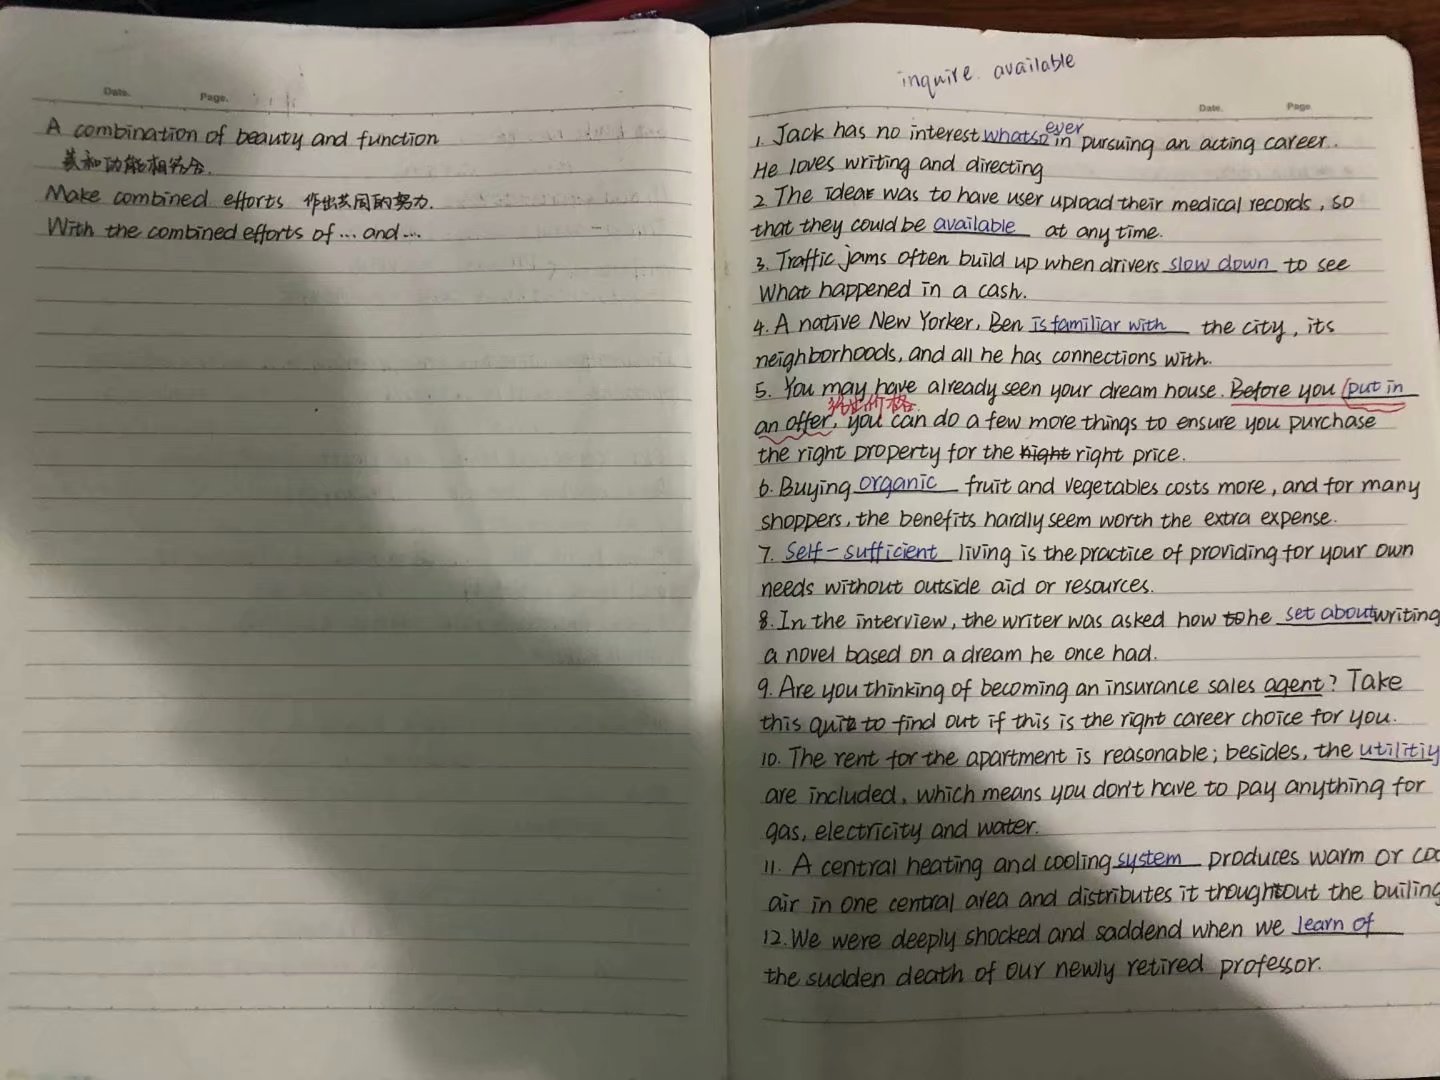 Date. Page.
A combination of beauty and function
美和功能相结合.
Make combined efforts 作出共同的努力.
With the combined efforts of ... and ...
inquire. available
Date. Page
1. Jack has no interest whatsoever in pursuing an acting career.
He loves writing and directing
2 The idea was to have user upload their medical records, so
that they could be available at any time.
3. Traffic jams often build up when drivers slow down to see
What happened in a cash.
4. A native New Yorker, Ben is familiar with the city, its
neighborhoods, and all he has connections with.
5. You may have already seen your dream house. Before you put in
给出价格
an offer, you can do a few more things to ensure you purchase
the right property for the right price.
6. Buying organic fruit and vegetables costs more, and for many
shoppers, the benefits hardly seem worth the extra expense.
7. Self-sufficient living is the practice of providing for your own
needs without outside aid or resources.
8. In the interview, the writer was asked how he set about writing
a novel based on a dream he once had.
9. Are you thinking of becoming an insurance sales agent? Take
this to find out if this is the right career choice for you.
10. The rent for the apartment is reasonable; besides, the utilitiy
are included, which means you don't have to pay anything for
gas, electricity and water.
11. A central heating and cooling system produces warm or coo
air in one central area and distributes it thoughtout the builing
12. We were deeply shocked and saddend when we learn of
the sudden death of our newly retired professor.